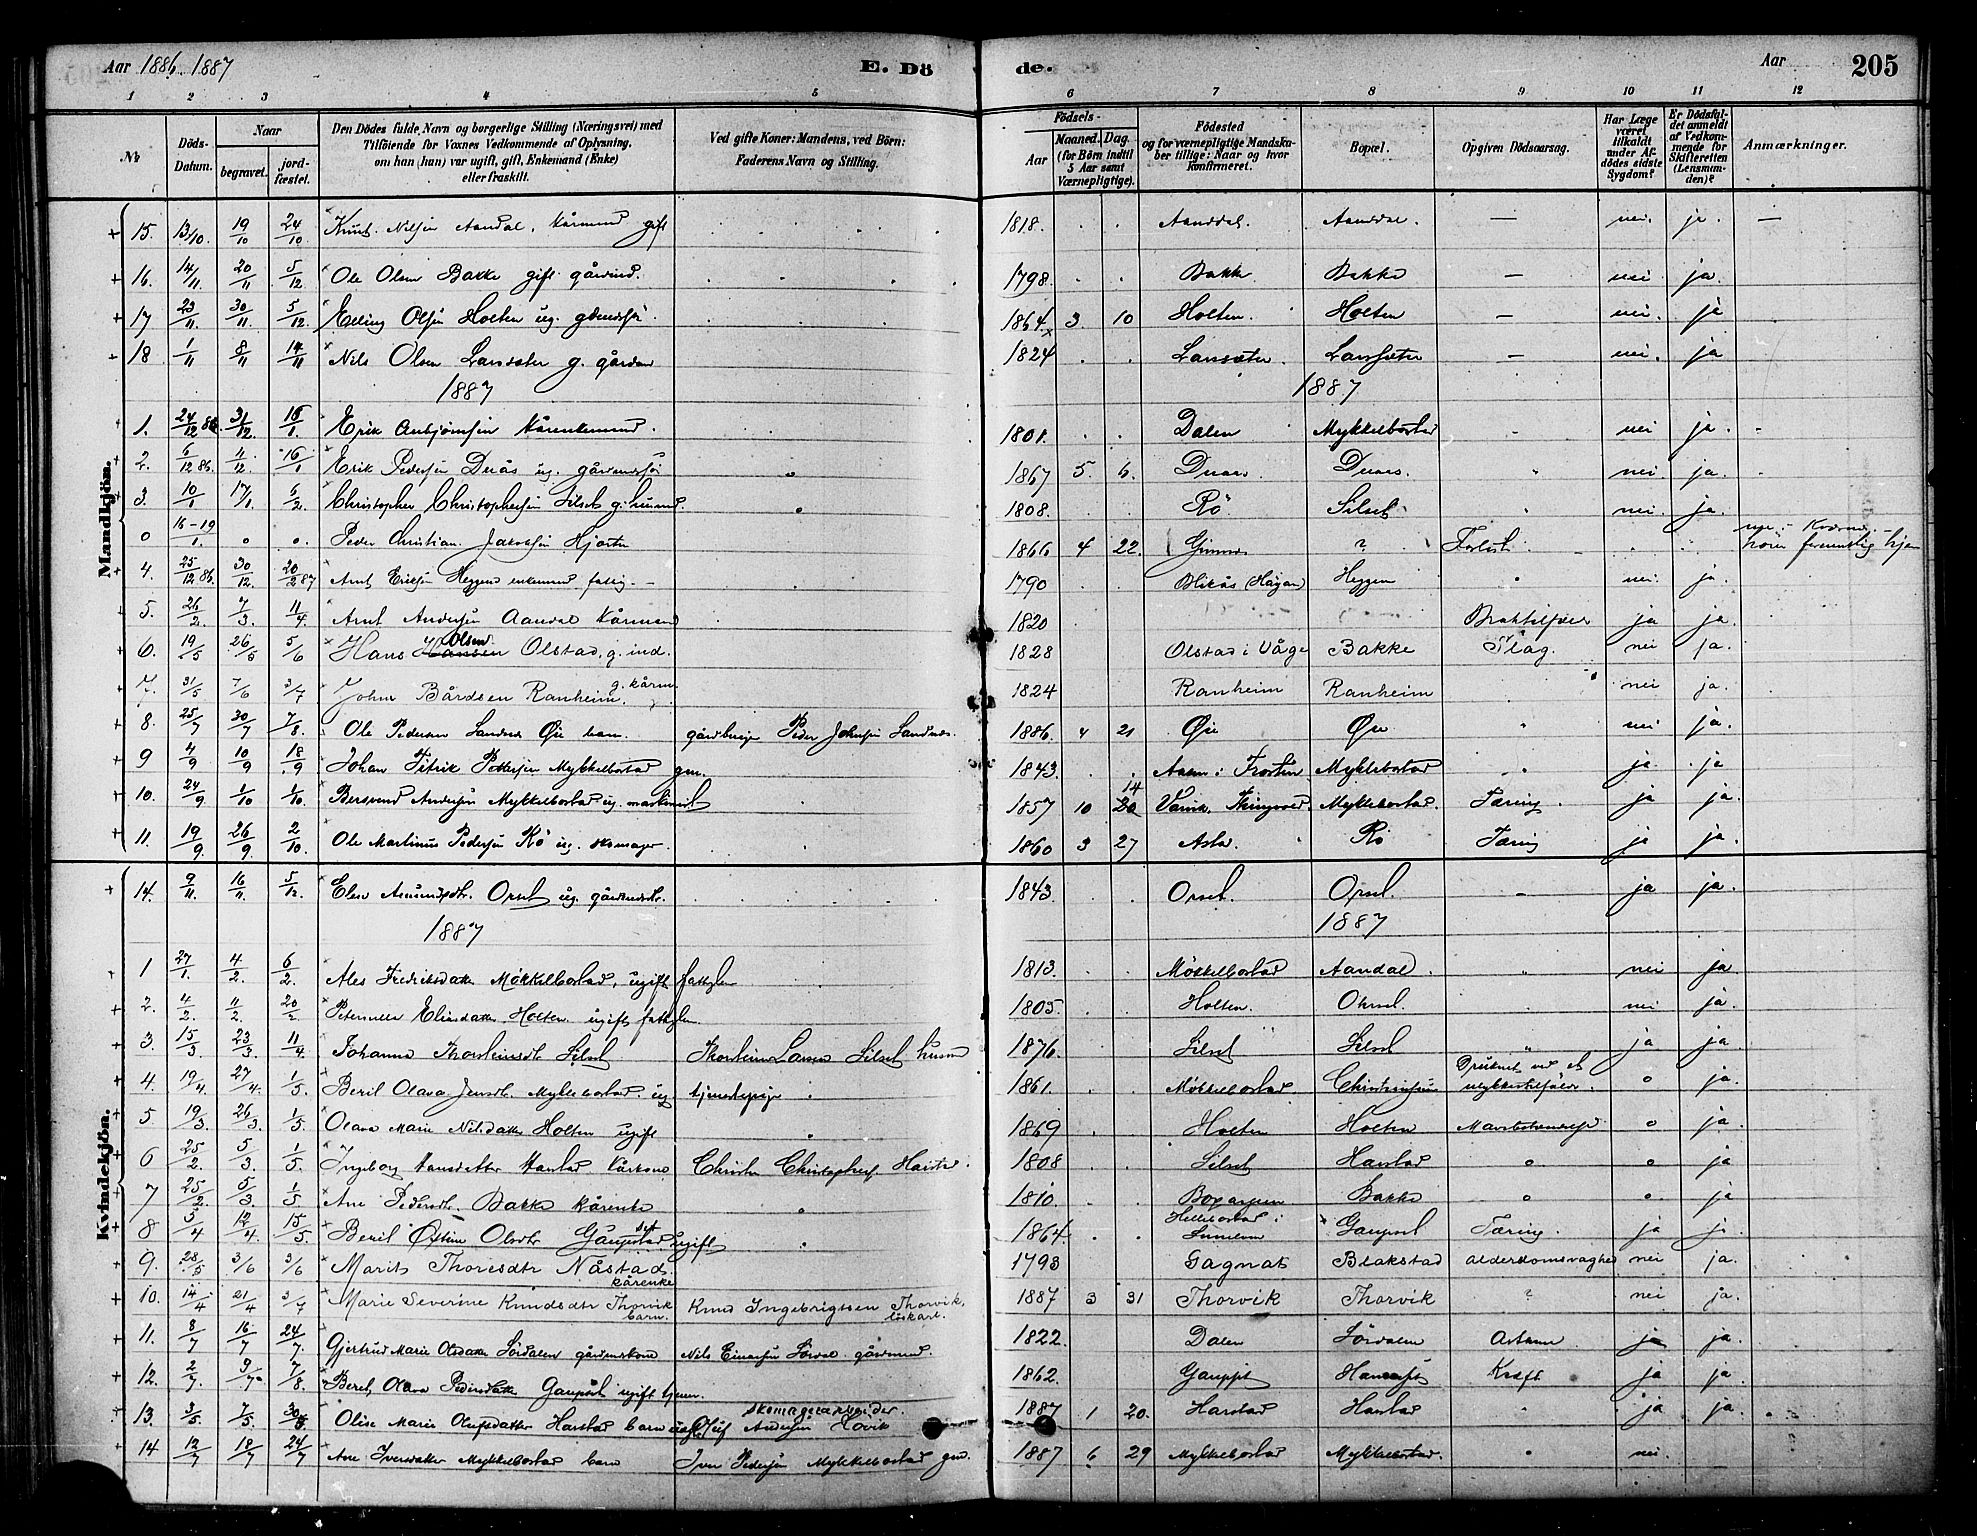 Aar 1886. 1887
E. Dö
de.
Aar
205
1 2 3 4 5 6 7 8 9 10 11 12
No
Döds-Datum.
Naar
begravet.
jord-fæstet.
Den Dödes fulde Navn og borgerlige Stilling (Næringsvei) med
Tilföiende for Voxnes Vedkommende af Oplysning,
om han (hun) var ugift, gift, Enkemand (Enke)
eller fraskilt.
Ved gifte Koner: Mandens, ved Börn:
Faderens Navn og Stilling.
Födsels-
Aar
Maaned. Dag.
(for Börn indtil
5 Aar samt
Værnepligtige).
Födested
og for værnepligtige Mandska-
ber tillige: Naar og hvor
konfirmeret.
Bopæl.
Opgiven Dödsaarsag.
Har Læge
været
tilkaldt
under Af-
dödes sidste
Sygdom?
Er Dödsfal-
det anmeldt
af Vedkom-
mende for
Skifteretten
(Lensman-
den)?
Anmærkninger.
Mandkjön.
15. 13/10. 19/10 24/10 Knut Nilsen Aandal, kårmand gift 1818. Aanddal. Aanddal. — nei. ja. —
16. 14/11 20/11 5/12 Ole Olsen Bakke gift gårmd. 1798. Bakke Bakke — nei ja.
17 23/11. 30/11. 5/12. Erling Olsen Holten ug. 1864 3 10 Holten. Holten — nei. ja
18 1/11 8/11 14/11 Nils Olsen Lansæter g. 1824 Lansæter. Lansæter — nei. ja
1887 1887
1. 24/12 86. 31/12. 16/1. Erik Anbjörnsen kårenkemand. 1801. Dalen Mykkelbostad nei ja.
2. 6/12 86. 11/12. 16/1 Erik Pedersen Duås ug. gårmandssön 1867 5. 6. Duaas. Duaas. nei ja.
3. 10/1 17/1. 6/2. Christopher Christophersen Silset g. husmd. 1808. Rö Silset nei. ja.
0 16-19/1. 0 0. Peder Christian Jakobsen Hjorten 1866 4 22. Gimnes ? Forlist
4. 25/12 86. 30/12. 20/2 87 Arnt Eriksen Heggem enkemand fattig 1790 Blikås (Høgan) Heggem nei. ja.
5. 26/2. 7/3. 11/4 Arnt Andersen Aandal kårmand 1820 ja ja.
6. 19/5 26/5 5/6 Hans Olsen Olstad, g. ind. 1828 Olstad i Våge Bakke Slag. nei ja.
7. 31/5 7/6 3/7 John Bårdsen Ranheim g. kårm. 1824 Ranheim Ranheim nei ja.
8. 25/7 30/7 7/8. Ole Pedersen Sandnes Øie barn. gårdbruger Peder Johnsen Sandnes. 1886. 4 21 Øie Øie nei ja.
9 4/9 10/9 18/9 Johan Petrik Pettersen Mykkelbostad gm. 1843. Aasen i Frosten Mykkelbostad ja ja
10. 24/9 1/10 1/10. Bersvend Andersen Mykkelbostad ug. 1857 10 14 20 Vanvik. Tæring. ja ja.
11. 19/9. 26/9. 2/10. Ole Martinus Pedersen Rö ug. skomager. 1860 3 27 Rö Tæring ja ja.
Kvindekjön.
14. 9/11 16/11. 5/12. Elen Amundsdtr. Orset ug. gårmandsdtr. 1843. Orset. Orset. — ja ja.
1887 1887
1 27/1. 4/2. 6/2. Ales Fredriksdatter Møkkelbostad, ugift fattiglem 1813. Møkkelbostad Aandal. nei ja
2. 4/2. 11/2. 20/2 Peternella Eliasdatter Holten ugift fattiglem. 1805. Holten. Ohrset. nei ja.
3. 15/3 23/3. 11/4 Johanna Thorsteinsdtr. Silset Thorstein Larsen Silset husm 1876. Silset Silset ja ja.
4. 19/4. 27/4. 1/5 Beril Olava Jensdtr. Mykkelbostad. ug. tjenestepige 1861. Møkkelbostad. Christiansund Druknet ved et ulykkestilfælde. 0 ja.
5. 19/3. 26/3. 1/5 Olava Marie Nilsdatter Holten ugift 1869 Holten Holten 0 ja.
6 25/2. 5/3. 1/5. Ingeborg Hansdatter Harstad kårkone Christen Christophers. Harstad. 1808 Silset Harstad 0 0 ja
7 25/2. 5/3 1/5 Ane Pedersdtr. Bakke kårenke 1810. Bakke 0 0. ja
8 5/4 12/4. 15/5. Beril Olsdtr. Gaupset ugift 1864. Gaupset Tæring. ja ja.
9. 28/5 3/6 3/6 Marit Thoresdtr Nåstad. kårenke 1793 Gagnat Blakstad alderdomsvaghed nei ja.
10. 14/4 21/4 3/7 Marie Severine Knudsdtr Thorvik barn. Knud Ingebrigtsen Thorvik, löskarl. 1887 3 31 Thorvik Thorvik ? nei ja.
11. 8/7 16/7 24/7. Gjertrud Marie Olsdatter Sördalen gårmandskone Nils Einarsen Sördal. gårdmand. 1822. Dalen Sördalen Asthma ja ja.
12. 2/7. 9/7. 7/8. Beret Olava Pedersdatter Gaupset ugift tjener. 1862. Gaupset Kræft ja ja.
13. 3/5 7/5 Oline Marie Olufsdatter Harstad barn uægte Oluf Andersen Hövik skomagerarbeider. 1887 1 20. Harstad Harstad ja ja.
14 12/7 18/7 24/7 Ane Iversdatter Mykkelbostad barn Iver Pedersen Mykkelbostad gm. 1887 6 29 Mykkelbostad Mykkelbostad. nei